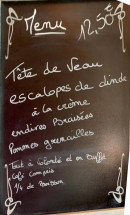 Menu 12,50€
Tête de Veau
escalopes de dinde
à la crème
endives Braisées
Pommes grenailles
Tout à volonté et en Buffet
Café compris
1/4 de Boisson